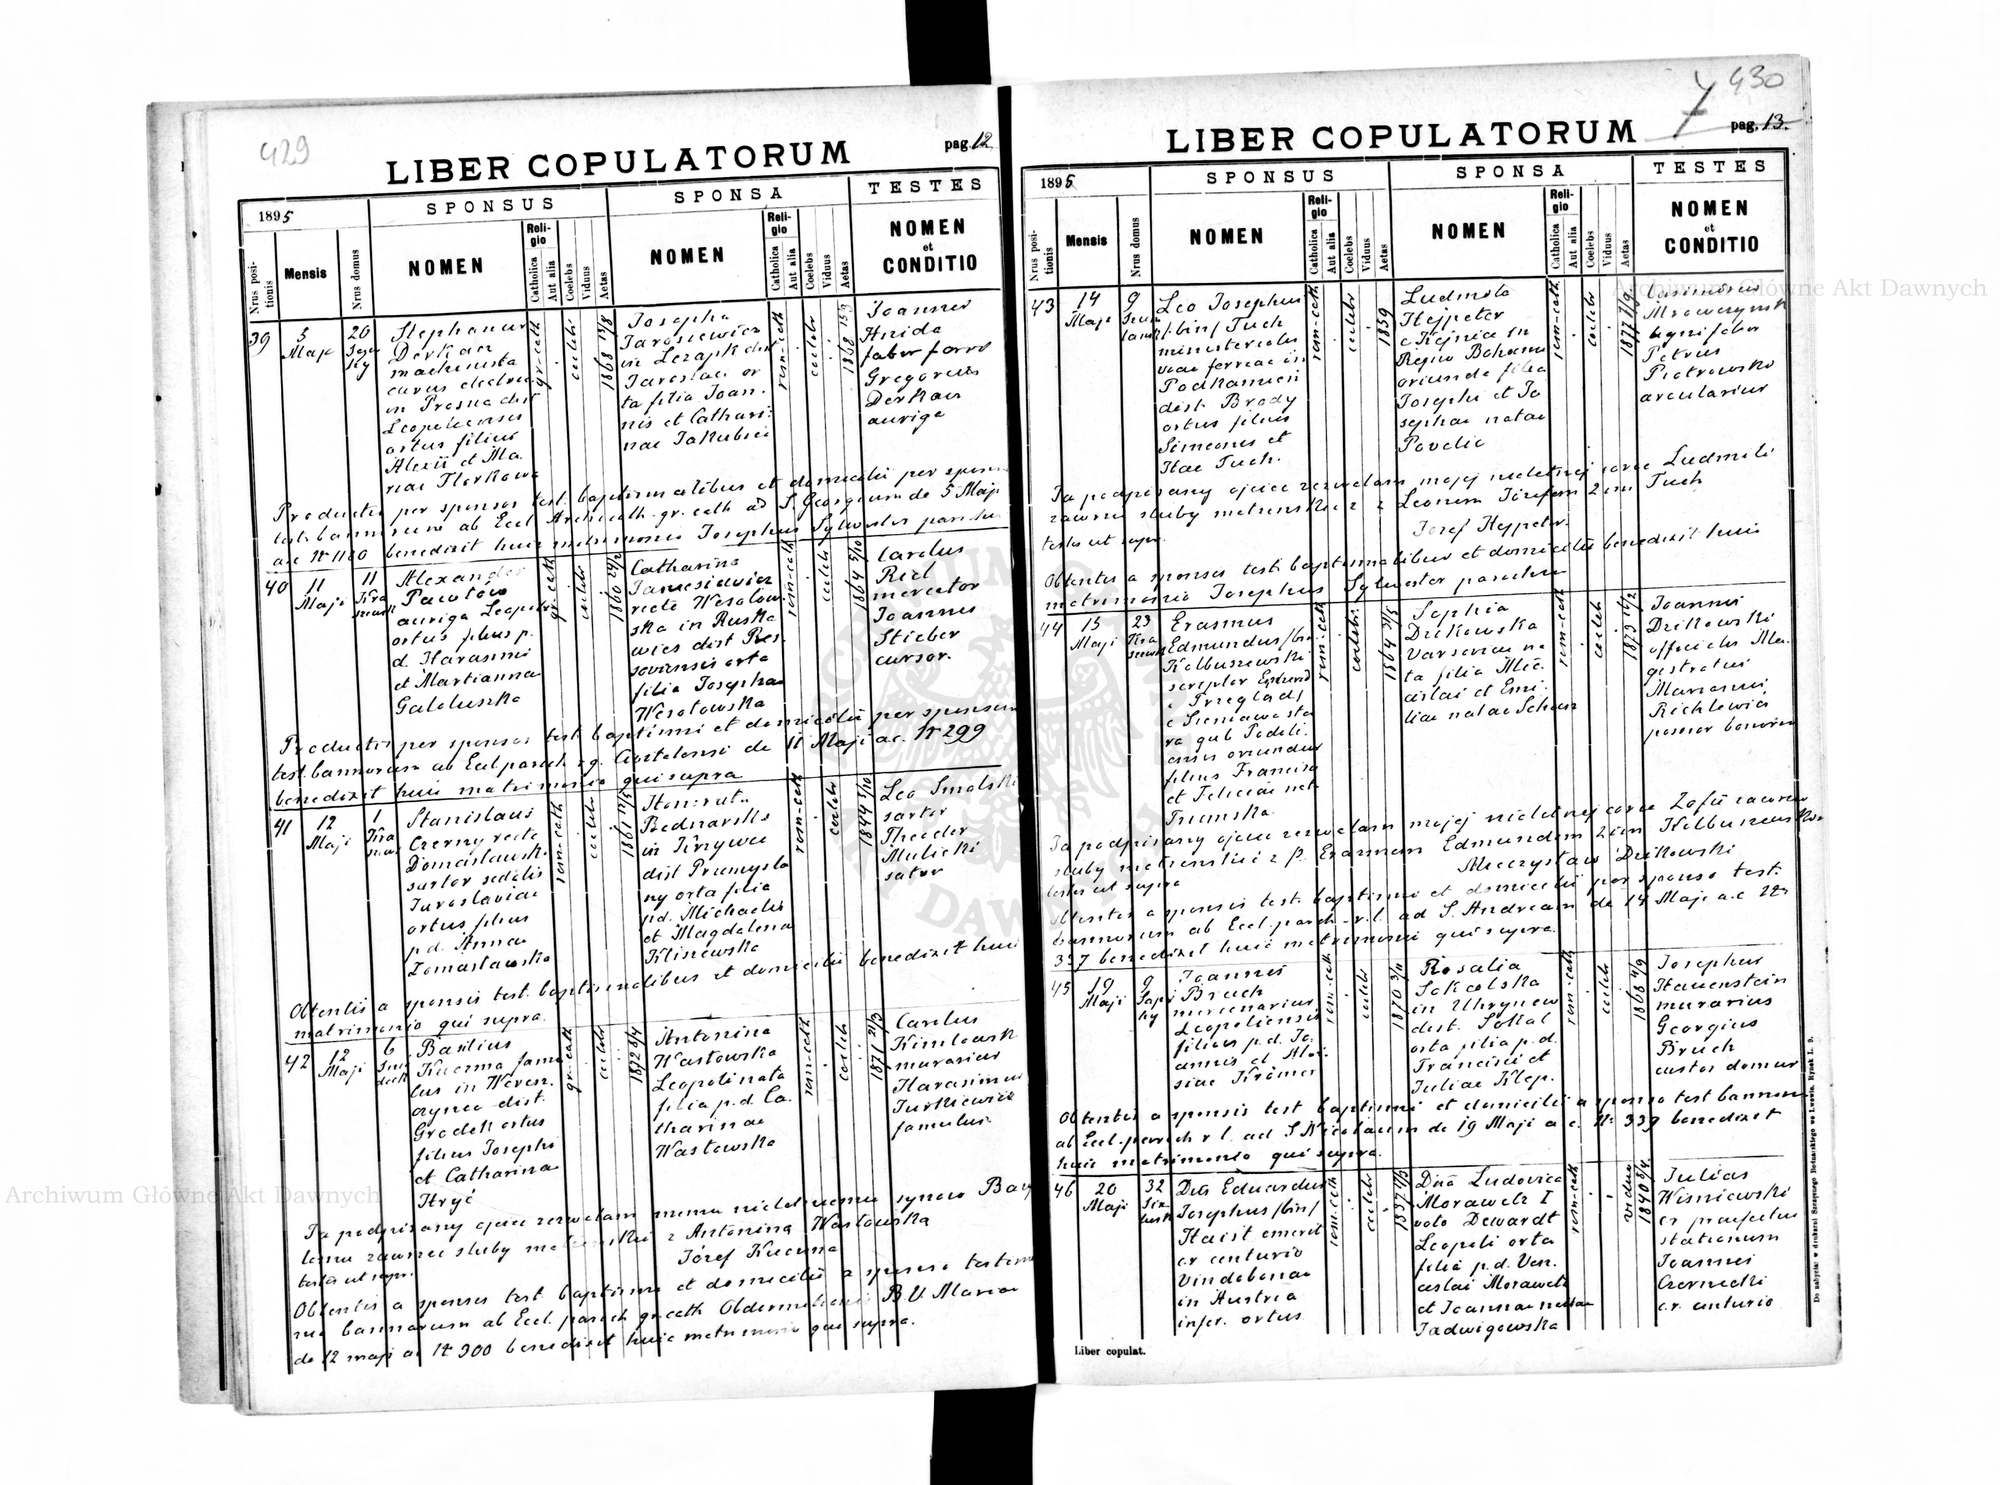 429
LIBER COPULATORUM
pag. 12
1895
SPONSUS
SPONSA
TESTES
Nrus positionis
Mensis
Nrus domus
NOMEN
Religio
Catholica
Aut alia
Coelebs
Viduus
Aetas
NOMEN
Religio
Catholica
Aut alia
Coelebs
Viduus
Aetas
NOMEN
et
CONDITIO
39
5
Maji
20
Stephanus
Derkacz
machinista
currus electrici
in Presna dist
Leopoliensis
ortus filius
Alexii et Ma
riae
gr-cath
coelebs
1868
Josepha
Jarosiewicz
in Lezajsk dist
Jaroslau or
ta filia Joan
nis et Cathari
nae Jakubiec
rom-cath
coelebs
1868
Joannes
Hnida
faber ferro
Gregorius
Derkacz
auriga
Productis per sponsos test. baptismalibus et domicilii per sponsum
test. bannorum ab Eccl. Archicath. gr. cath ad S. Georgium de 5 Maji
a.c. N 1180 benedixit huic matrimonio Josephus Sylwester parochus
40
11
Maji
11
Alexander
Pawłów
auriga Leopoli
ortus filius p.
d. Harasimi
et Martianna
Galoluszka
gr-cath
coelebs
1860
Catharina
Janusiewicz
recte Wesołow
ska in Ruska
wies dist Res
soviensis orta
filia Josepha
Wesołowska
rom-cath
coelebs
1864 5/10
Carolus
Riel
mercator
Joannes
Stieber
cursor.
Productis per sponsos test. baptismi et domicilii per sponsum
test. bannorum ab Eccl. parch r.g. de 11 Maji a.c. N 299
benedixit huic matrimonio qui supra
41
12
Maji
1
Stanislaus
Czerny recte
Domaslawski
sartor sedelis
Jaroslaviae
ortus filius
p.d. Anna
Domasławska
rom-cath
coelebs
1861
Honorata
Bednarska
in Żyrawa
dist Przemysla
ny orta filia
p.d. Michaelis
et Magdalena
Kliszewska
rom-cath
coelebs
1844 5/10
Leo Smolski
sartor
Theodor
Mulicki
sator
Obtentis a sponsis test. baptismalibus et domicilii benedixit huic
matrimonio qui supra.
42
12
Maji
6
Basilius
Kuczma famu
lus in Weresz
czyca dist.
Grodek ortus
filius Josephi
et Catharina
Hryć
gr-cath
coelebs
1872 8/4
Antonina
Wasłowska
Leopoli nata
filia p.d. Ca
tharinae
Wasłowska
rom-cath
coelebs
1871 21/3
Carolus
murarius
Harasimus
Turkiewicz
famulus
Ja podpisany ojciec zezwalam memu nieletniemu synowi Bazy
lemu zawrzeć śluby małżeńskie z Antoniną Wasłowska
Józef Kuczma
testes ut supr.
Obtentis a sponsis test baptismi et domicilii a sponso testimo
nio bannorum ab Eccl. parch gr.cath Obdormitionis B V Mariae
de 12 maji ac N 300 benedixit huic matrimonio qui supra.
7 430
LIBER COPULATORUM
pag. 13.
1895
SPONSUS
SPONSA
TESTES
Nrus positionis
Mensis
Nrus domus
NOMEN
Religio
Catholica
Aut alia
Coelebs
Viduus
Aetas
NOMEN
Religio
Catholica
Aut alia
Coelebs
Viduus
Aetas
NOMEN
et
CONDITIO
43
14
Maji
9
Leo Josephus
/bin/ Tuch
ministerialis
viae ferreae in
Podkamień
dist. Brody
ortus filius
Simeonis et
Itae Tuch.
rom-cath
coelebs
1859
Ludmila
Hejpeter
e Kejnice in
Regno Bohemi
oriunda filia
Josephi et Jo
sephae natae
Povolic
rom-cath
coelebs
1877 7/9
Casimirus
Mrowczynski
lignifaber
Petrus
Piotrowski
arcularius
Ja podpisany ojciec zezwalam mojej nieletniej córce Ludmile
zawrzeć śluby małżeńskie z Leonem Józefem 2 im Tuch
Josef Hejpeter
testes ut supra.
Obtentis a sponsis test. baptismalibus et domicilii benedixit huic
matrimonio Josephus Sylwester parochus
44
15
Maji
23
Erasmus
Edmundus /bin
Kolbuszewski
scriptor Edmund
e Przeglad
e Sieniawa sta
ra gub Podoli
ensis oriundus
filius Francisci
et Feliciae nat
Trumska.
rom-cath
coelebs
1864 31/5
Sophia
Dzikowska
Varsoviae na
ta filia Mie
cislai et Emi
liae natae Schar
rom-cath
coelebs
1873 16/2
Joannes
Dzikowski
officialis Ma
gistratus
Marianus
Richlewicz
possesor bonorum
Ja podpisany ojciec zezwalam mojej nieletniej córce Zofii zawrzeć
śluby małżeńskie z P. Erazmem Edmundem 2 im Kolbuszewskim
Mieczysław Dzikowski
testes ut supra
Obtentis a sponsis test. baptismi et domicilii per sponso test.
bannorum ab Eccl. parch. r.l. ad S. Andream de 14 Maji a.c. 22
337 benedixit huic matrimonii qui supra.
45
19
Maji
9
Joannes
Bruch
mercenarius
Leopoliensis
filius p.d. Jo
annis et Aloi
siae Krömer
rom-cath
coelebs
1870 3/11
Rosalia
Sokolska
in Uhrynow
dist. Sokal
orta filia p.d.
Francisci et
Juliae Klep.
rom-cath
coelebs
1868 4/9
Josephus
Hauenstein
murarius
Georgius
Bruch
custos domus
Obtentis a sponsis test baptismi et domicilii a sponso test bannorum
ab Eccl. parch r l. ad S Nicolaum de 19 Maji a c. N 339 benedixit
huic matrimonio qui supra.
46
20
Maji
32
Dus Eduardus
Josephus /bin/
Haist emerit
cr centurio
Vindobonae
in Austria
infer. ortus
rom-cath
coelebs
1837
Dna Ludovica
Morawetz I
voto Dewardt
Leopoli orta
filia p.d. Ven
ceslai Morawetz
et Joannae natae
Jadwigowska
rom-cath
vidua
1840 5/4
Julius
Wisniewski
cr praefectus
stationum
Joannes
Czernecki
c.r. centurio
Liber copulat.
Do nabycia: w drukarni Szczęsnego Bednarskiego we Lwowie, Rynek l. 9.
Archiwum Główne Akt Dawnych
Archiwum Główne Akt Dawnych